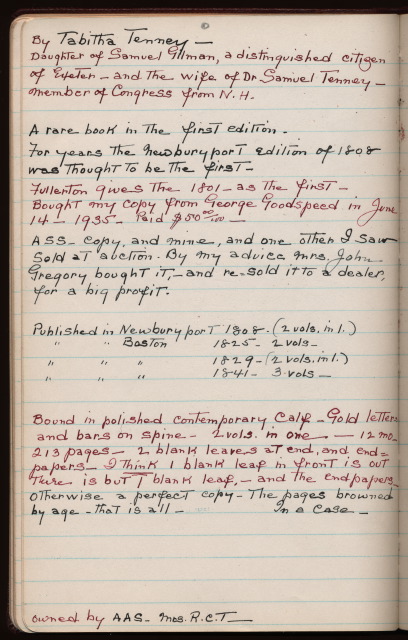 By Tabitha Tenney -
Daughter of Samuel Gilman, a distinguished citizen
of Exeter - and the wife of Dr. Samuel Tenney -
member of Congress from N.H.
A rare book in the first edition -
For years the Newburyport edition of 1808
was thought to be the first -
Fullerton gives the 1801 - as the first -
Bought my copy from George Goodspeed in June
14 - 1935 - Paid $50.00 -
ASS - copy, and mine, and one other I saw
sold at auction. By my advice Mrs. John
Gregory bought it, - and re-sold it to a dealer,
for a big profit.
Published in Newburyport 1808. (2 vols. in 1.)
" " Boston 1825 - 2 vols -
" " " 1829 - (2 vols. in 1.)
" " " 1841 - 3 vols -
Bound in polished contemporary Calf - Gold letters
and bars on spine - 2 vols. in one - 12 mo.
213 pages - 2 blank leaves at end, and end=
papers - I think 1 blank leaf in front is out
There is but 1 blank leaf, - and the endpapers
otherwise a perfect copy - The pages browned
by age - that is all - In a case -
owned by AAS - Mrs. R.C.T -